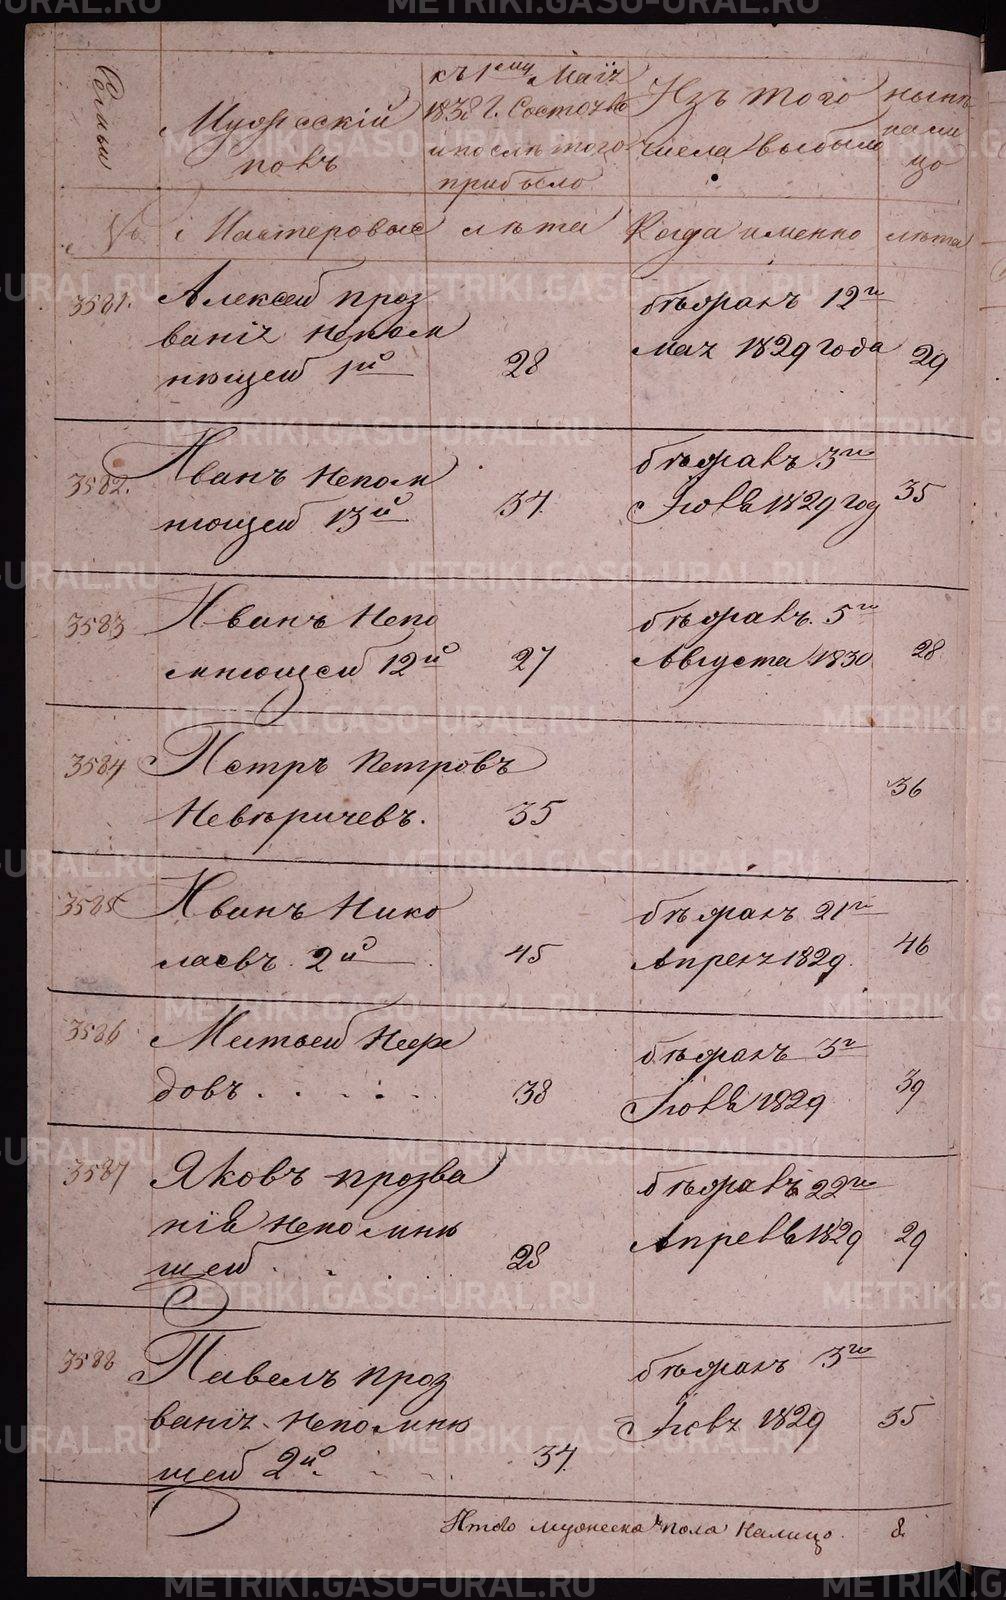 Семьи
Мужескій
полъ
къ 1му Маія
1838 г. Состояло
и послѣ того
прибыло
Изъ того
числа выбыло
нынѣ
нали
цо
№
Мастеровые
лѣта
Когда именно
лѣта
3581.
Алексей проз
ванія Непом
нющей 1й
28
бѣжалъ 12го
мая 1829 года
29
3582.
Иванъ Непом
нющей 13й
34
бѣжалъ 3го
Іюля 1829 год
35
3583
Иванъ Непо
мнющей 12й
27
бѣжалъ 5го
Августа 1830
28
3584
Петръ Петровъ
Невѣричевъ.
35
36
3585
Иванъ Нико
лаевъ 2й
45
бѣжалъ 21го
Апреля 1829.
46
3586
Матвей
довъ
38
бѣжалъ 3г
Іюля 1829
39
3587
Яковъ прозва
нія Непомню
щей
28
бѣжалъ 22го
Апреля 1829
29
3588
Павелъ проз
ванія Непомню
щей 2й
34
бѣжалъ 3го
Іюля 1829
35
Итого мужеска пола налицо.
8
METRIKI.GASO-URAL.RU